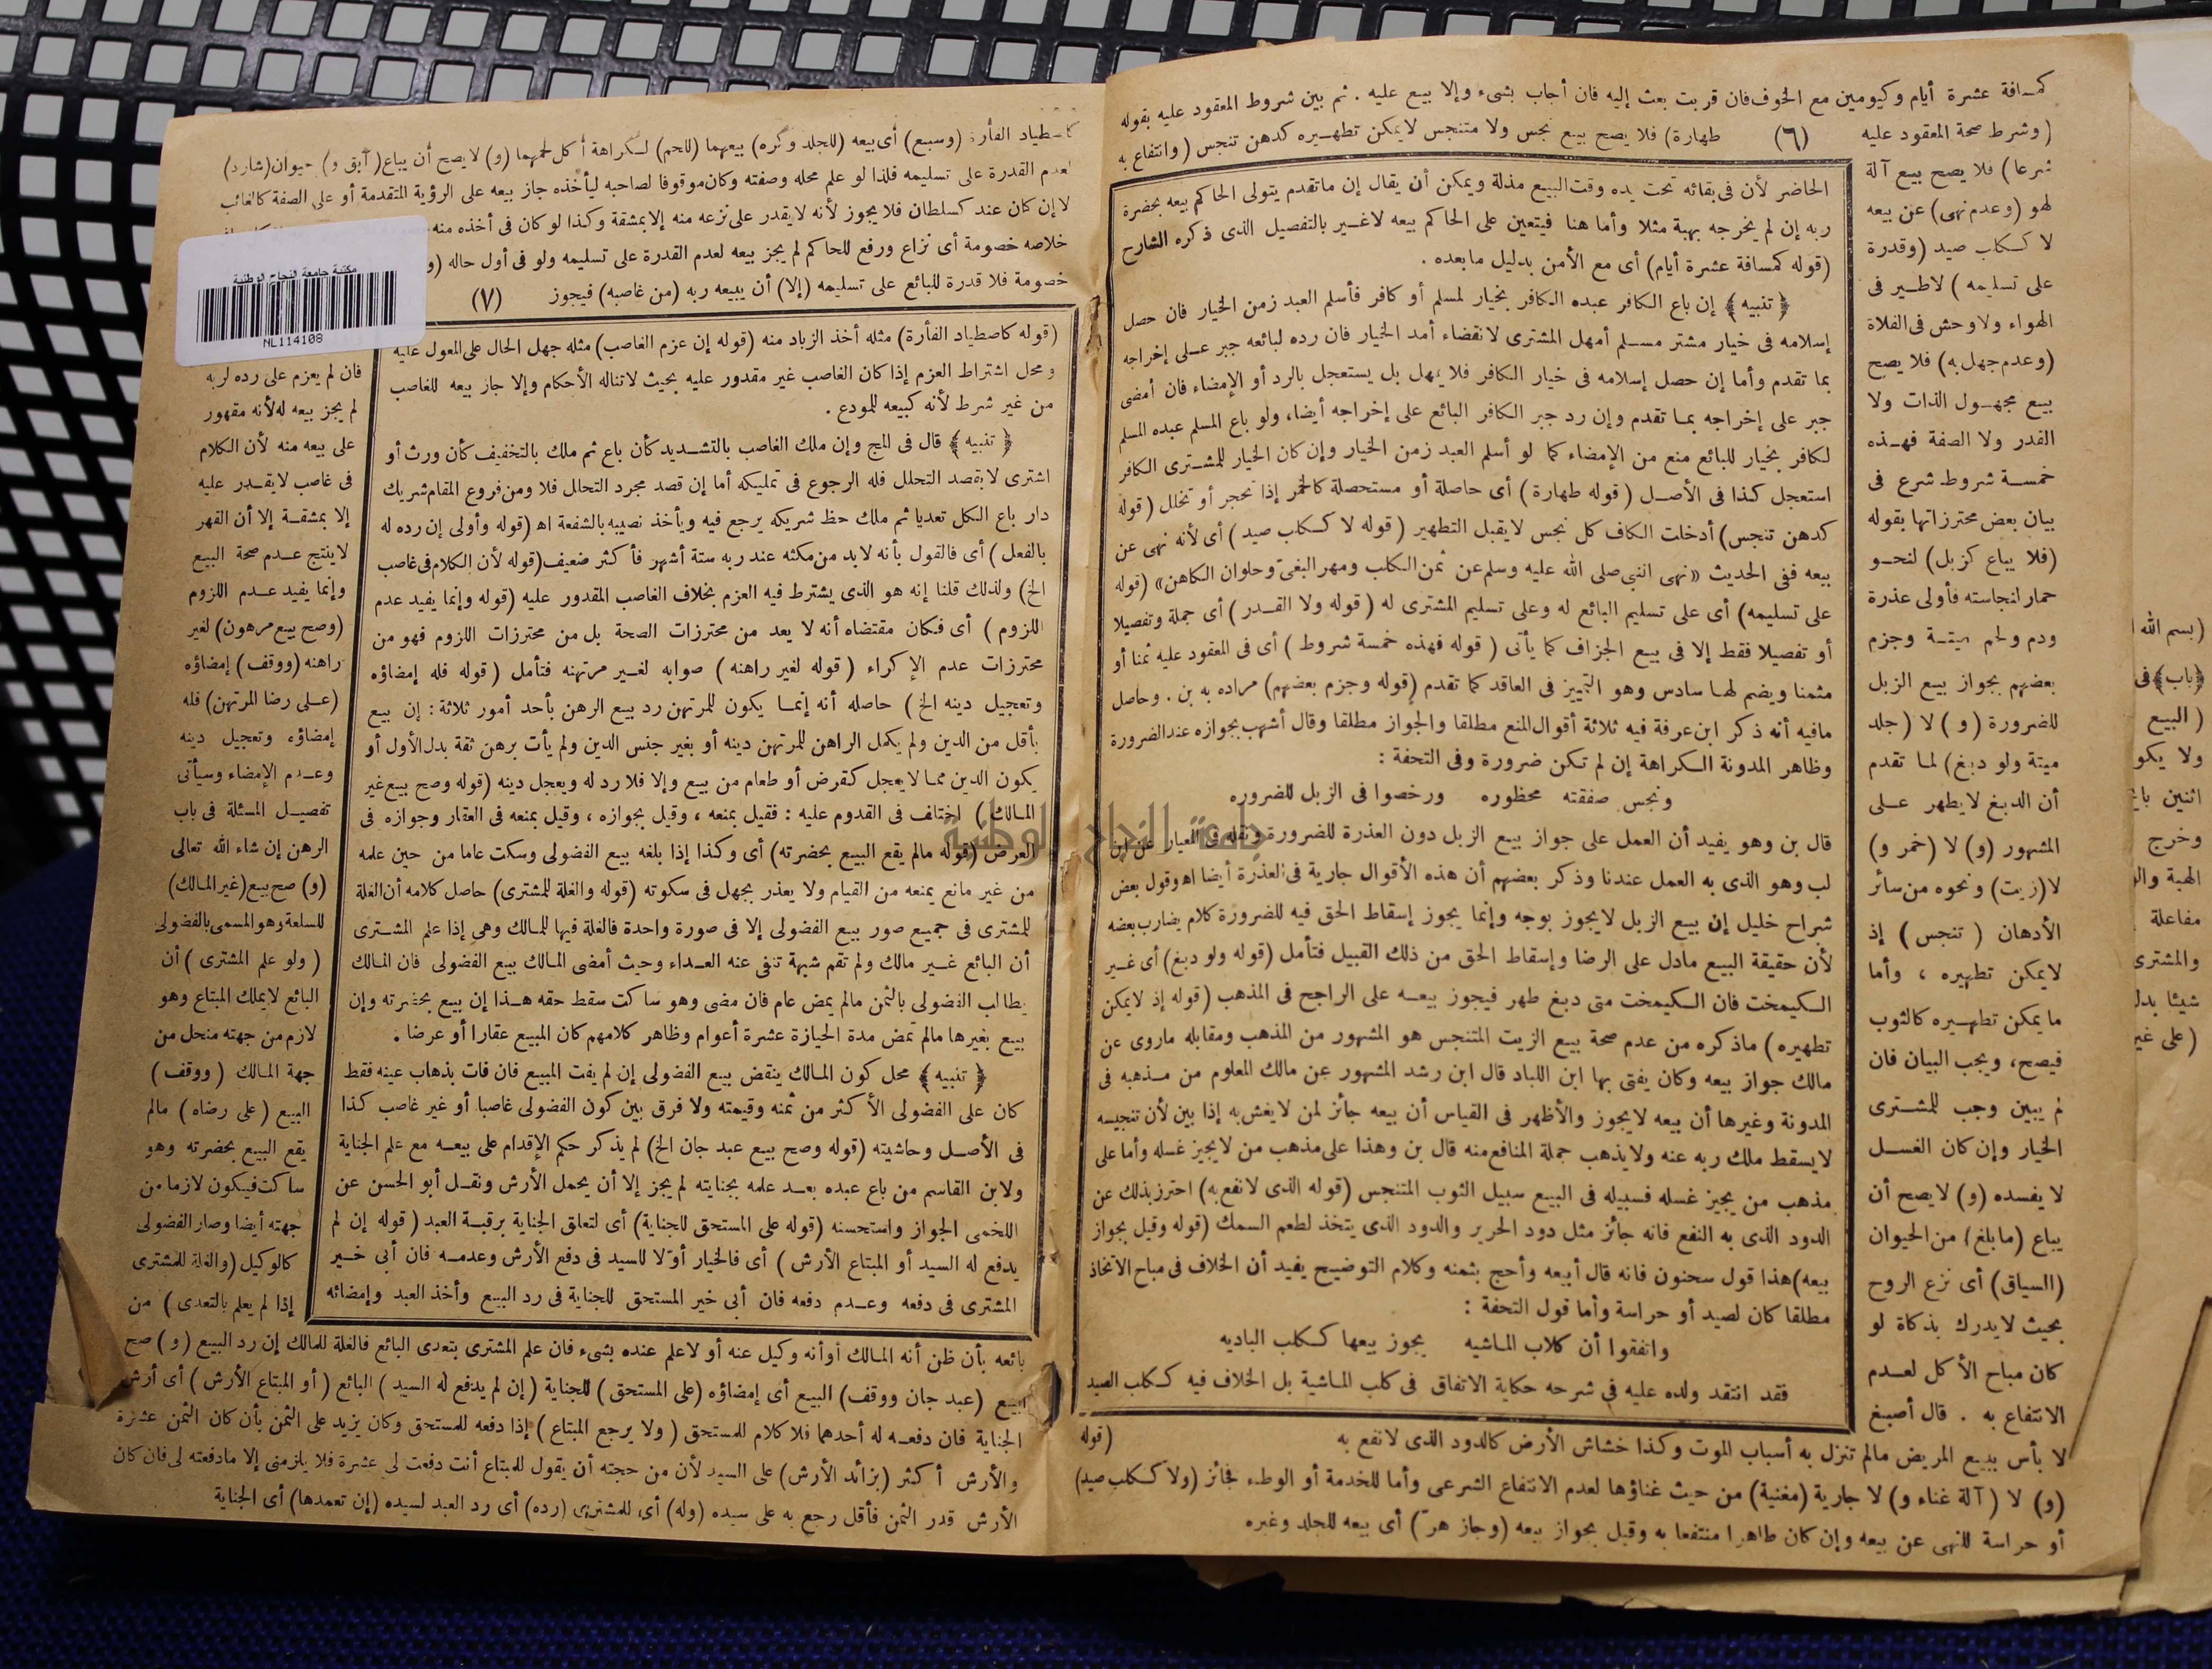 كمسافة عشرة أيام وكيومين مع الخوف فان قربت بعث إليه فان أجاب بشىء وإلا بيع عليه . ثم بين شروط المعقود عليه بقوله
(وشرط صحة المعقود عليه (٦) طهارة) فلا يصح بيع نجس ولا متنجس لايمكن تطهيره كدهن تنجس (وانتفاع به
شرعا) فلا يصح بيع آلة
لهو (وعدم نهى) عن بيعه
لا ككلب صيد (وقدرة
على تسليمه) لاطير فى
الهواء ولا وحش فى الفلاة
(وعدم جهل به) فلا يصح
بيع مجهول الذات ولا
القدر ولا الصفة فهذه
خمسة شروط شرع فى
بيان بعض محترزاتها بقوله
(فلا يباع كزبل) لنحو
حمار لنجاسته فأولى عذرة
ودم ولحم ميتة وجزم
بعضهم بجواز بيع الزبل
للضرورة (و) لا (جلد
ميتة ولو دبغ) لما تقدم
أن الدبغ لايطهر على
المشهور (و) لا (خمر و)
لا (زيت) ونحوه من سائر
الأدهان (تنجس) إذ
لايمكن تطهيره ، وأما
مايمكن تطهيره كالثوب
فيصح، ويجب البيان فان
لم يبين وجب للمشترى
الخيار وإن كان الغسل
لا يفسده (و) لايصح أن
يباع (مابلغ) من الحيوان
(السياق) أى نزع الروح
بحيث لايدرك بذكاة لو
كان مباح الأكل لعدم
الانتفاع به . قال أصبغ
لا بأس ببيع المريض مالم تنزل به أسباب الموت وكذا خشاش الأرض كالدود الذى لانفع به
(و) لا (آلة غناء و) لا جارية (مغنية) من حيث غناؤها لعدم الانتفاع الشرعى وأما للخدمة أو الوطء فجائز (ولا ككلب صيد)
أو حراسة للنهى عن بيعه وإن كان طاهرا منتفعا به وقيل بجواز بيعه (وجاز هر) أى بيعه للجلد وغيره
الحاضر لأن فى بقائه تحت يده وقت البيع مذلة ويمكن أن يقال إن ماتقدم يتولى الحاكم بيعه بحضرة
ربه إن لم يخرجه بهبة مثلا وأما هنا فيتعين على الحاكم بيعه لاغير بالتفصيل الذى ذكره الشارح
(قوله كمسافة عشرة أيام) أى مع الأمن بدليل مابعده .
﴿تنبيه﴾ إن باع الكافر عبده الكافر بخيار لمسلم أو كافر فأسلم العبد زمن الخيار فان حصل
إسلامه فى خيار مشتر مسلم أمهل المشترى لانقضاء أمد الخيار فان رده لبائعه جبر على إخراجه
بما تقدم وأما إن حصل إسلامه فى خيار الكافر فلا يمهل بل يستعجل بالرد أو الإمضاء فان أمضى
جبر على إخراجه بما تقدم وإن رد جبر الكافر البائع على إخراجه أيضا، ولو باع المسلم عبده المسلم
لكافر بخيار للبائع منع من الإمضاء كما لو أسلم العبد زمن الخيار وإن كان الخيار للمشترى الكافر
استعجل كذا فى الأصل (قوله طهارة) أى حاصلة أو مستحصلة كالخمر إذا تحجر أو تخلل (قوله
كدهن تنجس) أدخلت الكاف كل نجس لايقبل التطهير (قوله لا ككلب صيد) أى لأنه نهى عن
بيعه ففى الحديث «نهى النبى صلى الله عليه وسلم عن ثمن الكلب ومهر البغى وحلوان الكاهن» (قوله
على تسليمه) أى على تسليم البائع له وعلى تسليم المشترى له (قوله ولا القدر) أى جملة وتفصيلا
أو تفصيلا فقط إلا فى بيع الجزاف كما يأتى (قوله فهذه خمسة شروط) أى فى المعقود عليه ثمنا أو
مثمنا ويضم لها سادس وهو التمييز فى العاقد كما تقدم (قوله وجزم بعضهم) مراده به بن . وحاصل
مافيه أنه ذكر ابن عرفة فيه ثلاثة أقوال المنع مطلقا والجواز مطلقا وقال أشهب بجوازه عند الضرورة
وظاهر المدونة الكراهة إن لم تكن ضرورة وفى التحفة :
ونجس صفقته محظوره ورخصوا فى الزبل للضروره
قال بن وهو يفيد أن العمل على جواز بيع الزبل دون العذرة للضرورة ونقله فى المعيار عن ابن
لب وهو الذى به العمل عندنا وذكر بعضهم أن هذه الأقوال جارية فى العذرة أيضا اه وقول بعض
شراح خليل إن بيع الزبل لايجوز بوجه وإنما يجوز إسقاط الحق فيه للضرورة كلام يضارب بعضه
لأن حقيقة البيع مادل على الرضا وإسقاط الحق من ذلك القبيل فتأمل (قوله ولو دبغ) أى غير
الكيمخت فان الكيمخت متى دبغ طهر فيجوز بيعه على الراجح فى المذهب (قوله إذ لايمكن
تطهيره) ماذكره من عدم صحة بيع الزيت المتنجس هو المشهور من المذهب ومقابله ماروى عن
مالك جواز بيعه وكان يفتى بها ابن اللباد قال ابن رشد المشهور عن مالك المعلوم من مذهبه فى
المدونة وغيرها أن بيعه لايجوز والأظهر فى القياس أن بيعه جائز لمن لايغش به إذا بين لأن تنجيسه
لايسقط ملك ربه عنه ولا يذهب جملة المنافع منه قال بن وهذا على مذهب من لايجيز غسله وأما على
مذهب من يجيز غسله فسبيله فى البيع سبيل الثوب المتنجس (قوله الذى لانفع به) احترز بذلك عن
الدود الذى به النفع فانه جائز مثل دود الحرير والدود الذى يتخذ لطعم السمك (قوله وقيل بجواز
بيعه) هذا قول سحنون فانه قال أبيعه وأحج بثمنه وكلام التوضيح يفيد أن الخلاف فى مباح الاتخاذ
مطلقا كان لصيد أو حراسة وأما قول التحفة :
واتفقوا أن كلاب الماشيه يجوز بيعها ككلب الباديه
فقد انتقد ولده عليه فى شرحه حكاية الاتفاق فى كلب الماشية بل الخلاف فيه ككلب الصيد
(قوله
كاصطياد الفأرة (وسبع) أى بيعه (للجلد وكره) بيعهما (للحم) لكراهة أكل لحمهما (و) لايصح أن يباع (آبق و) حيوان (شارد)
لعدم القدرة على تسليمه فلذا لو علم محله وصفته وكان موقوفا لصاحبه ليأخذه جاز بيعه على الرؤية المتقدمة أو على الصفة كالغائب
لا إن كان عند كسلطان فلا يجوز لأنه لايقدر على نزعه منه إلا بمشقة وكذا لو كان فى أخذه منه
خلاصه خصومة أى نزاع ورفع للحاكم لم يجز بيعه لعدم القدرة على تسليمه ولو فى أول حاله (و
خصومة فلا قدرة للبائع على تسليمه (إلا) أن يبيعه ربه (من غاصبه) فيجوز (٧)
مكتبة جامعة النجاح الوطنية
NL114108
(قوله كاصطياد الفأرة) مثله أخذ الزباد منه (قوله إن عزم الغاصب) مثله جهل الحال على المعول عليه
ومحل اشتراط العزم إذا كان الغاصب غير مقدور عليه بحيث لاتناله الأحكام وإلا جاز بيعه للغاصب
من غير شرط لأنه كبيعه للمودع .
﴿تنبيه﴾ قال فى المج وإن ملك الغاصب بالتشديد كأن باع ثم ملك بالتخفيف كأن ورث أو
اشترى لابقصد التحلل فله الرجوع فى تمليكه أما إن قصد مجرد التحلل فلا ومن فروع المقام شريك
دار باع الكل تعديا ثم ملك حظ شريكه يرجع فيه ويأخذ نصيبه بالشفعة اه (قوله وأولى إن رده له
بالفعل) أى فالقول بأنه لابد من مكثه عند ربه ستة أشهر فأكثر ضعيف (قوله لأن الكلام فى غاصب
الخ) ولذلك قلنا إنه هو الذى يشترط فيه العزم بخلاف الغاصب المقدور عليه (قوله وإنما يفيد عدم
اللزوم) أى فكان مقتضاه أنه لا يعد من محترزات الصحة بل من محترزات اللزوم فهو من
محترزات عدم الإكراء (قوله لغير راهنه) صوابه لغير مرتهنه فتأمل (قوله فله إمضاؤه
وتعجيل دينه الخ) حاصله أنه إنما يكون للمرتهن رد بيع الرهن بأحد أمور ثلاثة : إن بيع
بأقل من الدين ولم يكمل الراهن للمرتهن دينه أو بغير جنس الدين ولم يأت برهن ثقة بدل الأول أو
يكون الدين مما لايعجل كقرض أو طعام من بيع وإلا فلا رد له ويعجل دينه (قوله وصح بيع غير
المالك) اختلف فى القدوم عليه : فقيل بمنعه ، وقيل بجوازه ، وقيل بمنعه فى العقار وجوازه فى
العرض (قوله مالم يقع البيع بحضرته) أى وكذا إذا بلغه بيع الفضولى وسكت عاما من حين علمه
من غير مانع يمنعه من القيام ولا يعذر بجهل فى سكوته (قوله والغلة للمشترى) حاصل كلامه أن الغلة
للمشترى فى جميع صور بيع الفضولى إلا فى صورة واحدة فالغلة فيها للمالك وهى إذا علم المشترى
أن البائع غير مالك ولم تقم شبهة تنفى عنه العداء وحيث أمضى المالك بيع الفضولى فان المالك
يطالب الفضولى بالثمن مالم يمض عام فان مضى وهو ساكت سقط حقه هذا إن بيع بحضرته وإن
بيع بغيرها مالم تمض مدة الحيازة عشرة أعوام وظاهر كلامهم كان المبيع عقارا أو عرضا .
﴿تنبيه﴾ محل كون المالك ينقض بيع الفضولى إن لم يفت المبيع فان فات بذهاب عينه فقط
كان على الفضولى الأكثر من ثمنه وقيمته ولا فرق بين كون الفضولى غاصبا أو غير غاصب كذا
فى الأصل وحاشيته (قوله وصح بيع عبد جان الخ) لم يذكر حكم الإقدام على بيعه مع علم الجناية
ولابن القاسم من باع عبده بعد علمه بجنايته لم يجز إلا أن يحمل الأرش ونقل أبو الحسن عن
اللخمى الجواز واستحسنه (قوله على المستحق للجناية) أى لتعلق الجناية برقبة العبد (قوله إن لم
يدفع له السيد أو المبتاع الأرش) أى فالخيار أولا للسيد فى دفع الأرش وعدمه فان أبى خير
المشترى فى دفعه وعدم دفعه فان أبى خير المستحق للجناية فى رد البيع وأخذ العبد وإمضائه
فان لم يعزم على رده لربه
لم يجز بيعه له لأنه مقهور
على بيعه منه لأن الكلام
فى غاصب لايقدر عليه
إلا بمشقة إلا أن القهر
لاينتج عدم صحة البيع
وإنما يفيد عدم اللزوم
(وصح بيع مرهون) لغير
راهنه (ووقف) إمضاؤه
(على رضا المرتهن) فله
إمضاؤه وتعجيل دينه
وعدم الإمضاء وسيأتى
تفصيل المسئلة فى باب
الرهن إن شاء الله تعالى
(و) صح بيع (غير المالك)
للسلعة وهو المسمى بالفضولى
(ولو علم المشترى) أن
البائع لايملك المبتاع وهو
لازم من جهته منحل من
جهة المالك (ووقف)
البيع (على رضاه) مالم
يقع البيع بحضرته وهو
ساكت فيكون لازما من
جهته أيضا وصار الفضولى
كالوكيل (والغلة للمشترى
إذا لم يعلم بالتعدى) من
بائعه بأن ظن أنه المالك أو أنه وكيل عنه أو لاعلم عنده بشىء فان علم المشترى بتعدى البائع فالغلة للمالك إن رد البيع (و) صح
بيع (عبد جان ووقف) البيع أى إمضاؤه (على المستحق) للجناية (إن لم يدفع له السيد) البائع (أو المبتاع الأرش) أى أرش
الجناية فان دفعه له أحدهما فلا كلام للمستحق (ولا يرجع المبتاع) إذا دفعه للمستحق وكان يزيد على الثمن بأن كان الثمن عشرة
والأرش أكثر (بزائد الأرش) على السيد لأن من حجته أن يقول للمبتاع أنت دفعت لى عشرة فلا يلزمنى إلا مادفعته لى فان كان
الأرش قدر الثمن فأقل رجع به على سيده (وله) أى للمشترى (رده) أى رد العبد لسيده (إن تعمدها) أى الجناية
جامعة النجاح الوطنية
(بسم الله
﴿باب﴾ فى
(البيع
ولا يكو
اثنين
وخرج
الهبة
مفاعلة
والمشترى
شيئا بدل
(على غير